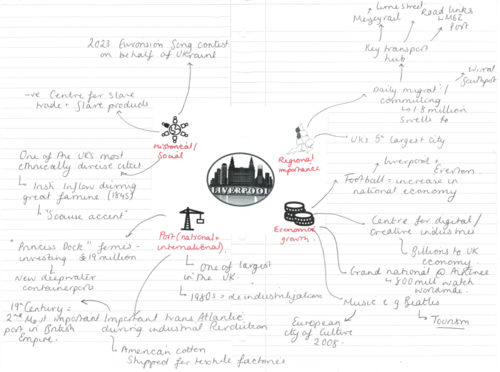 2023 Eurovision Song contest
on behalf of Ukraine
-ve Centre for slave
trade + slave products
Historical/
Social
One of the UK's most
ethnically diverse cities
Irish Inflow during
great famine (1845)
"Scouse accent"
LIVERPOOL
Lime Street
Merseyrail
Road links
M62
Port
Key transport
hub
Wirral
Southport
Daily migrat°/
commuting
1.8 million
swells to
UK's 5th largest city
Regional
importance
Liverpool +
Everton
Football = increase in
national economy
Economic
growth
Centre for digital/
creative industries
Billions to UK
economy
Grand national @ Aintree
800mill watch
worldwide
Music e.g Beatles
Tourism
European
city of Culture
2008
Port (national +
international)
One of largest
in the UK
1980s = deindustrialisation
"Princess Dock" ferries -
investing £19 million
New deepwater
containerport
19th Century =
2nd Most important
port in British
Empire.
Important trans Atlantic
during industrial Revolution
American cotton
Shipped for textile factories